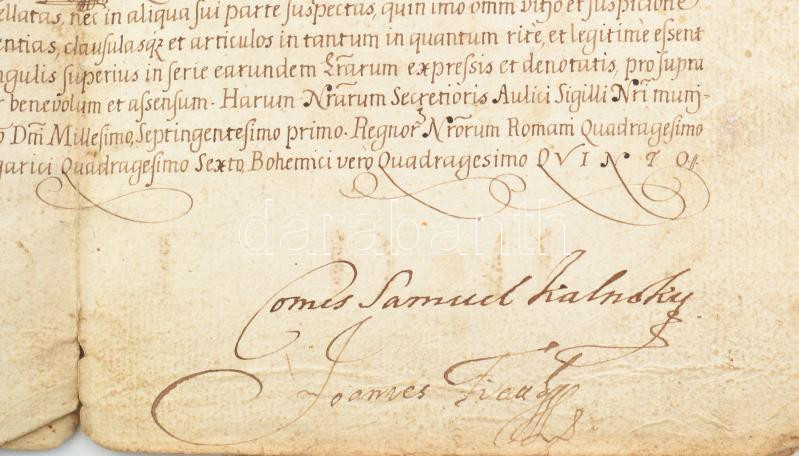 ellatas, nec in aliqua sui parte suspectas, quin imo omni vitjo et suspicione
entias, clausulasqz et articulos in tantum in quantum ritè, et legitimè essent
ngulis superius in serie earundem Lr̃arum expressis et denotatis, pro supra
r benevolum et assensum. Harum Nr̃arum Secretioris Aulici Sigilli Nr̃i muni-
o Dm̃ Millesimo, Septingentesimo primo. Regnor Nr̃orum Romani Quadragesimo
garici Quadragesimo Sexto, Bohemici verò Quadragesimo QVINTO.
darabanth
Comes Samuel Kalnoky
Joannes